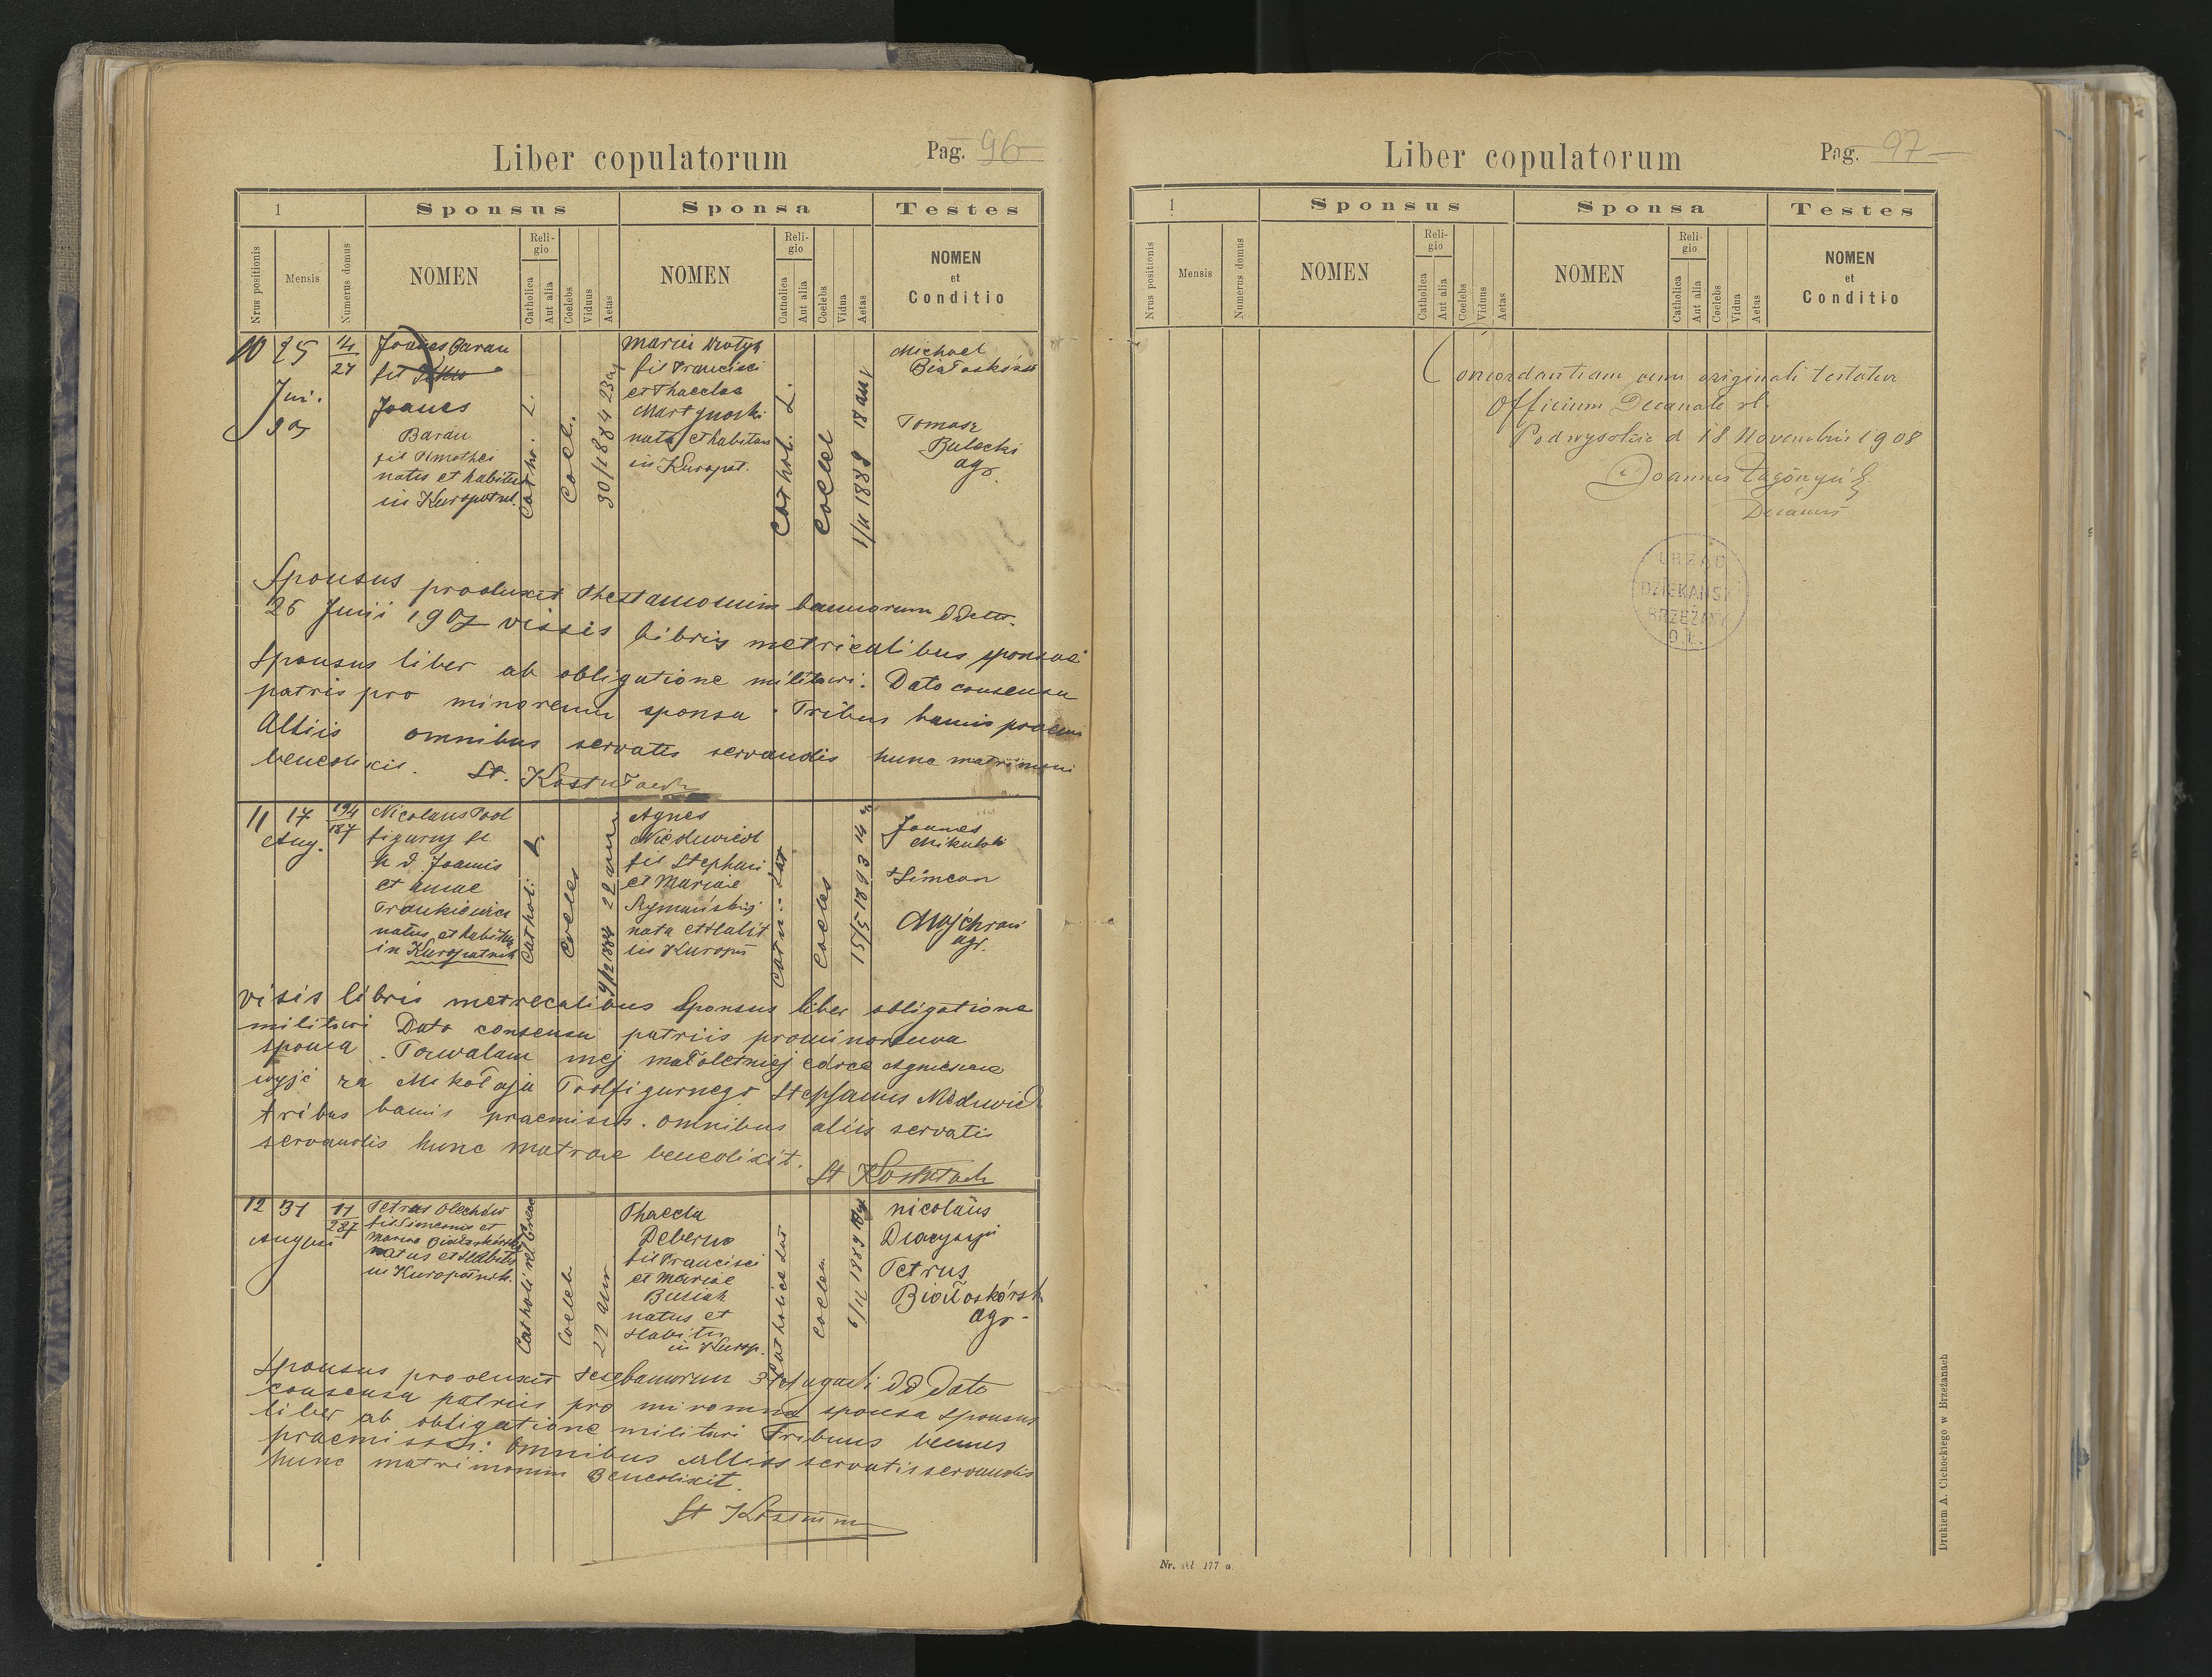 Liber copulatorum
Pag. 96
1
Sponsus
Sponsa
Testes
Nrus positionis
Mensis
Numerus domus
NOMEN
Reli-
gio
Catholica
Aut alia
Coelebs
Viduus
Aetas
NOMEN
Reli-
gio
Catholica
Aut alia
Coelebs
Vidua
Aetas
NOMEN
et
Conditio
10
25
Juni.
4/27
Joanes Baran
fil
Joanes
Baran
fil Timothei
natus et habitus
in Kuropatnik.
Catho. L.
Coel.
30/1 884 23
Maria Wrotyk
fil Francisci
et Thaeclae
Martynoski
nata et habitans
in Kuropat.
Cathol. L.
Coelel
1/11 1888 18 an
Michael
Białoskórski
Tomasz
Balecki
agr.
Sponsus produxit thestamonium bannorum dd
26 Junii 1907 vissis libris metricalibus sponsae
Sponsus liber ab obligatione militari. Dato consensu
patris pro minorenni sponsa. Tribus bannis praemi
Alliis omnibus servatis servandis hunc matrimoni
benedixit. St. Kostułach
11
17
Aug.
194/187
Nicolaus Pod
figurny fil
Joannis
et annae
Frankiewicz
natus et habitus
in Kuropatnik
Cathol: L
Coeleb
9/12 884 22 ann
Agnes
Niedzwiedz
fil Stephani
et Mariae
Szymański
nata et Habit
in Kurop
Lat
Coeleb
15/5 1893 14
Joannes
Mikulski
Simeon
Majchran
agr.
visis libris metricalibus Sponsus liber obligatione
militari Dato consensu patriis prominorenna
sponsa. Pozwalam mej małoletniej córce Agnieszce
wyjć za Mikołaja Podfigurnego Stephanus Niedzwied
tribus bannis praemissis. omnibus aliis servatis
servandis hunc matrae benedixit.
St Kostułach
12
31
Augusti
11/287
Petrus Olechów
fil Simeonis et
Mariae Białoskórski
natus et Habit
in Kuropatnik.
Catholi rel Graec
Coeleb
22 ann
Thaecla
Deberna
fil Francisci
et Mariae
Busiak
natus et
Habitu
in Kurop.
Catholica Lat
Coeleb
6/11 1889
Nicolaus
Petrus
Białoskórski
agr.
Sponsus produxit test bannorum 31 Augusti dd Dato
consensu patriis pro minorenna sponsa Sponsus
liber ab obligatione militari Tribuus bannis
praemissis: Omnibus alliis servatis servandis
hunc matrimonium Benedixit.
St
Liber copulatorum
Pag. 97
1
Sponsus
Sponsa
Testes
Nrus positionis
Mensis
Numerus domus
NOMEN
Reli-
gio
Catholica
Aut alia
Coelebs
Viduus
Aetas
NOMEN
Reli-
gio
Catholica
Aut alia
Coelebs
Vidua
Aetas
NOMEN
et
Conditio
Concordantiam cum originali testatur
Officium Decanale rl.
Podwysokie d 18 Novembris 1908
Joannes
Decanus
URZĄD
DZIEKAŃSKI
BRZEŻANY
O. Ł.
Nr. skł 177 a
Drukiem A. Cichockiego w Brzeżanach